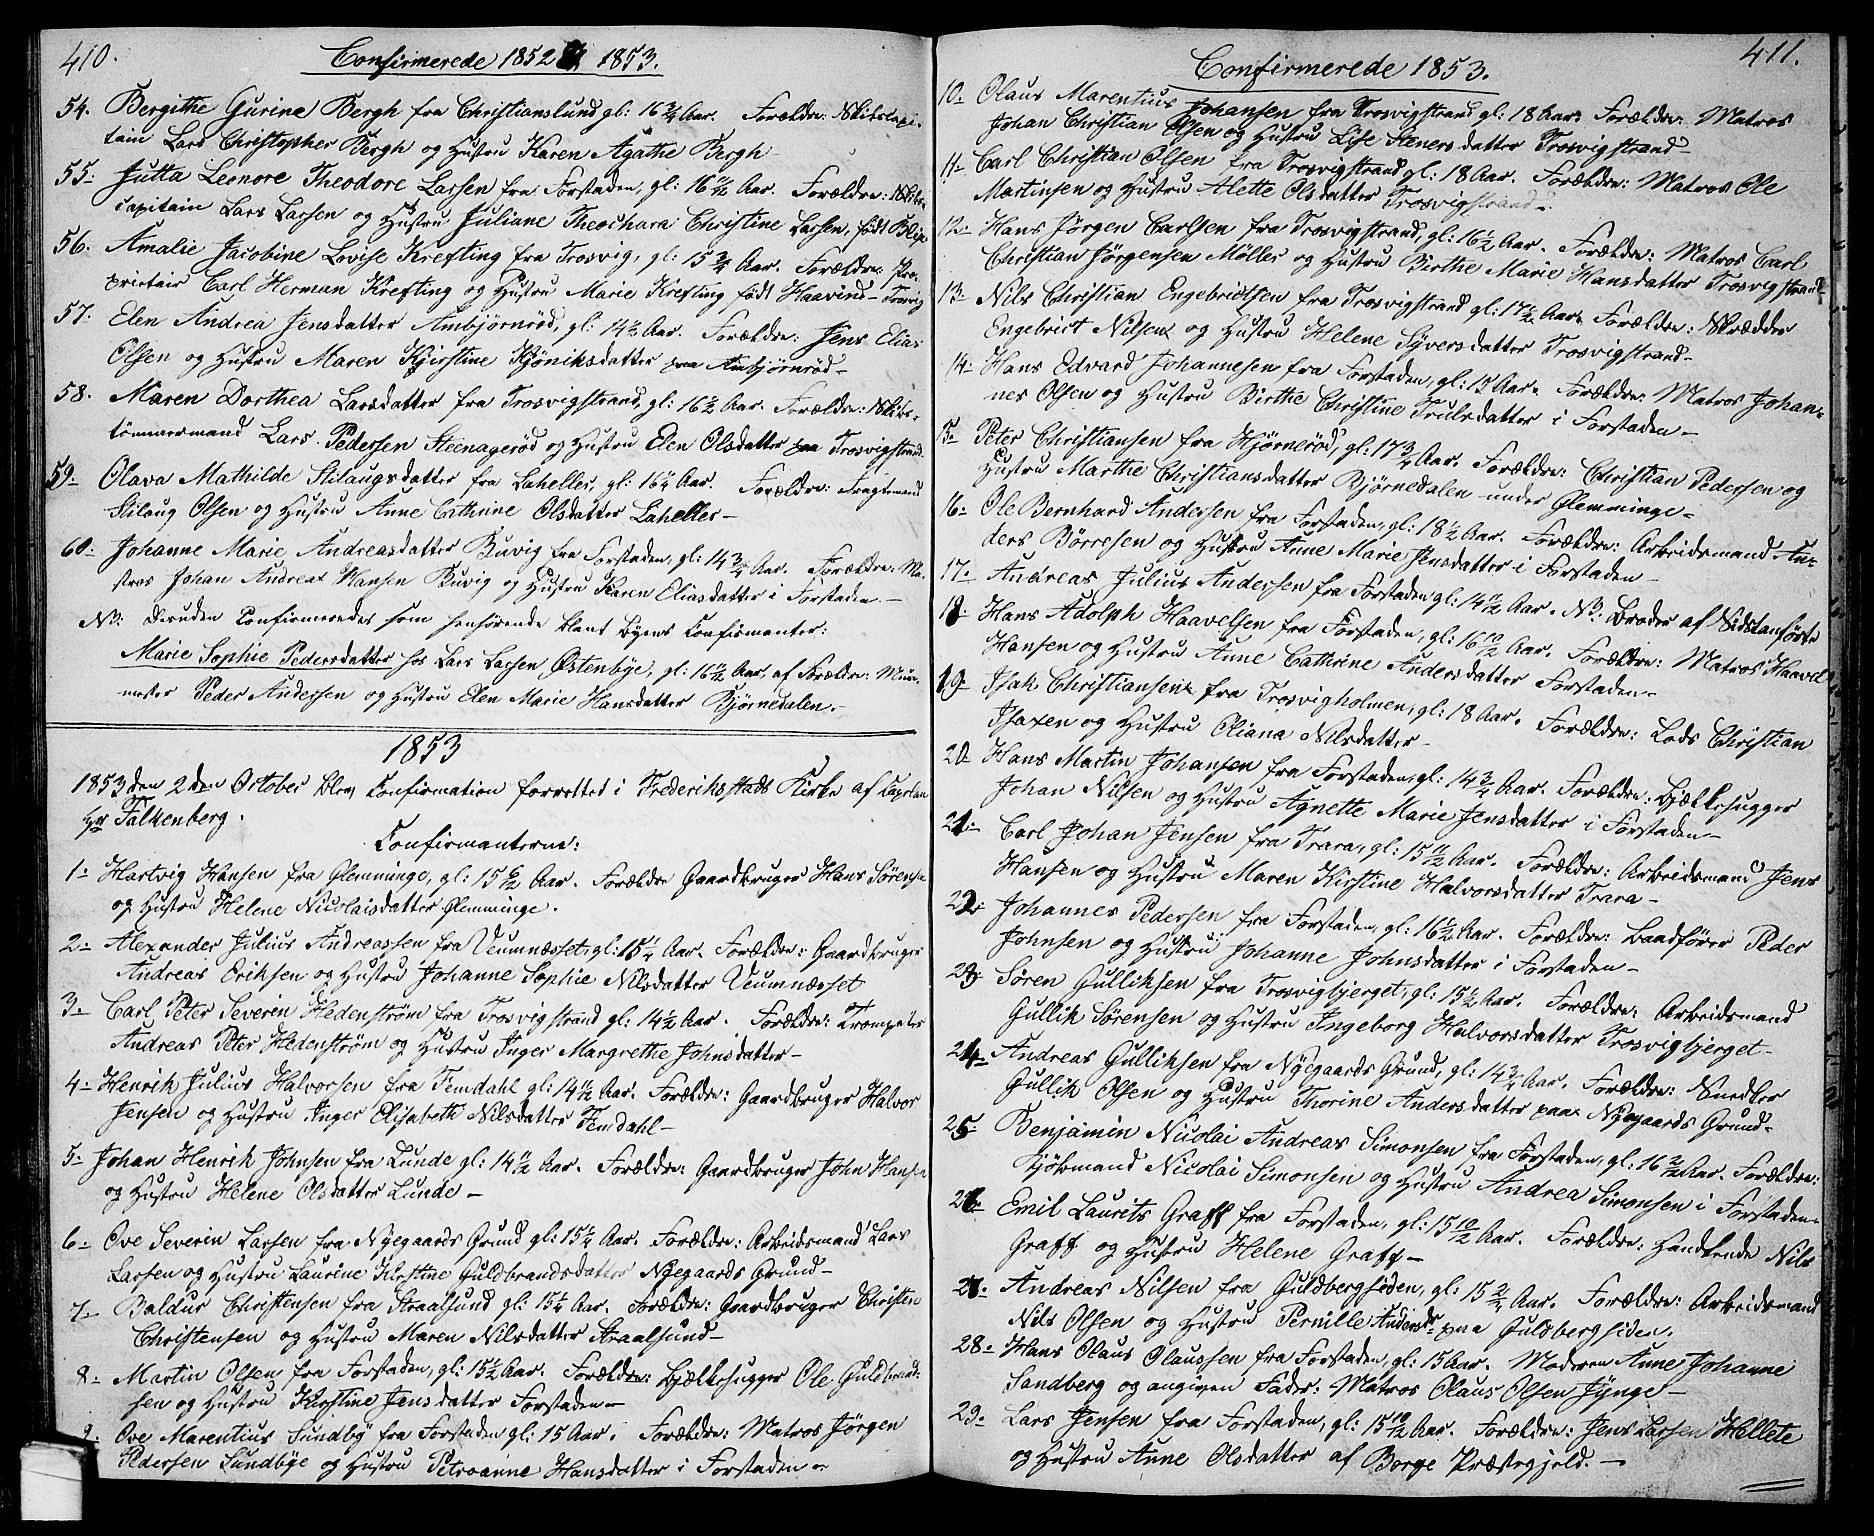 410.
Confirmerede 1852 & 1853.
54. Bergithe Gurine Bergh fra Christianslund gl: 16 3/4 Aar. Forældre: Skibscapi-
tain Lars Christopher Bergh og Hustru Karen Agathe Bergh
55: Jutta Leonore Theodore Larsen fra Forstaden, gl: 16 11/12 Aar. Forældre: Skibs
capitain Lars Larsen og Hustru Juliane Theochara Christine Larsen, født
56. Amalie Jacobine Lovise Krefting fra Trosvig, gl: 15 3/4 Aar. Forældre: Pro-
prietair Carl Herman Krefting og Hustru Marie Krefting født Haavind - Trosvig
57: Elen Andrea Jensdatter Ambjørnrød, gl: 14 1/2 Aar. Forældre: Jens Elias
Olsen og Hustru Maren Kjirstine Kjöniksdatter paa Ambjørnrød -
58. Maren Dorthea Larsdatter fra Trosvigstrand, gl: 16 1/2 Aar. Forældre: Skibs-
tömmermand Lars Pedersen Steenagerød og Hustru Elen Olsdatter paa Trosvigstrand
59: Olava Mathilde Stilaugsdatter fra Laheller, gl: 16 1/4 Aar. Forældre: Fragtemand
Stilaug Olsen og Hustru Anne Cathrine Olsdatter Laheller -
60: Johanne Marie Andreasdatter Buvig fra Forstaden, gl: 14 3/4 Aar. Forældre: Ma-
tros Johan Andreas Hansen Buvig og Hustru Karen Eliasdatter i Forstaden -
NB: Desuden Confirmeredes som henhörende blant Byens Confirmanter:
Marie Sophie Pedersdatter hos Lars Larsen Østenbye, gl: 16 11/12 Aar, af Forældre: Muur-
mester Peder Andersen og Hustru Elen Marie Hansdatter Bjørnedalen. -
1853
1853 den 2den October blev Confirmation forrettet i Frederiksstads Kirke af Capelan
Hr Falkenberg.
Confirmanterne:
1: Hartvig Hansen fra Glemminge, gl: 15 6/12 Aar. Forældre Gaardbruger Hans Sørensen
og Hustru Helene Nicolaisdatter Glemminge.
2: Alexander Julius Andreassen fra Veumnæsset, gl: 15 1/4 Aar. Forældre: Gaardbruger
Andreas Eriksen og Hustru Johanne Sophie Nilsdatter Veumnæsset
3. Carl Peter Severin Hedenström fra Trosvigstrand gl: 14 1/2 Aar. Forældre: Trompeter
Andreas Peter Hedenström og Hustru Inger Margrethe Johnsdatter -
4: Henrik Julius Halvorsen fra Temdahl gl: 14 1/2 Aar. Forældre: Gaardbruger Halvor
Jensen og Hustru Inger Elisabeth Nilsdatter Temdahl -
5: Johan Henrik Johnsen fra Lunde gl: 14 11/12 Aar. Forældre: Gaardbruger John Hansen
og Hustru Helene Olsdatter Lunde -
6: Ove Severin Larsen fra Nygaards Grund gl: 15 1/4 Aar. Forældre: Arbeidsmand Lars
Larsen og Hustru Laurine Kirstine Guldbrandsdatter Nygaards Grund -
7: Baldur Christensen fra Straalsund gl: 15 1/4 Aar. Forældre: Gaardbruger Christen
Christensen og Hustru Maren Nilsdatter Straalsund -
8: Martin Olsen fra Forstaden, gl: 15 1/2 Aar. Forældre: Bjælkehugger Ole Guldbrand-
sen og Hustru Kirstine Jensdatter Forstaden -
9. Ove Marentius Sundby fra Forstaden gl: 15 Aar. Forældre: Matros Jörgen
Pedersen Sundbye og Hustru Petroanne Hansdatter i Forstaden -
411.
Confirmerede 1853.
10: Olaus Marentius Johansen fra Trosvigstrand gl: 18 Aar. Forældre: Matros
Johan Christian Olsen og Hustru Lise Stenersdatter Trosvigstrand -
11: Carl Christian Olsen fra Trosvigstrand gl: 18 Aar. Forældre: Matros Ole
Martinsen og Hustru Alette Olsdatter Trosvigstrand -
12: Hans Jørgen Carlsen fra Trosvigstrand, gl: 16 1/2 Aar. Forældre: Matros Carl
Christian Jørgensen Möller og Hustru Birthe Marie Hansdatter Trosvigstrand -
13: Nils Christian Engebrictsen fra Trosvigstrand gl: 17 1/2 Aar. Forældre: Skrædder
Engebrict Nilsen og Hustru Helene Syversdatter Trosvigstrand -
14: Hans Edvard Johannesen fra Forstaden, gl: 15 Aar. Forældre: Matros Johan-
nes Olsen og Hustru Birthe Christine Trulsdatter i Forstaden -
15: Peter Christiansen fra Hjørnerød, gl: 17 3/4 Aar. Forældre: Christian Pedersen og
Hustru Marthe Christiansdatter Bjørnedalen under Glemminge -
16: Ole Bernhard Andersen fra Forstaden, gl: 18 1/2 Aar. Forældre: Arbeidsmand An-
ders Börresen og Hustru Anne Marie Jensdatter i Forstaden -
17: Andreas Julius Andersen fra Forstaden gl: 14 11/12 Aar. NB: Broder af Sidstanførte
18 Hans Adolph Haavelsen fra Forstaden, gl: 16 10/12 Aar. Forældre: Matros Haavel
Hansen og Hustru Anne Cathrine Andersdatter Forstaden -
19: Isak Christiansen fra Trosvigholmen, gl: 18 Aar. Forældre: Lods Christian
Isaxen og Hustru Oliana Nilsdatter -
20 Hans Martin Johansen fra Forstaden, gl: 14 3/4 Aar. Forældre: Bjælkehugger
Johan Nilsen og Hustru Agnette Marie Jensdatter i Forstaden -
21: Carl Johan Jensen fra Trara, gl: 15 11/12 Aar. Forældre: Arbeidsmand Jens
Hansen og Hustru Maren Kirstine Halvorsdatter Trara -
22: Johannes Pedersen fra Forstaden, gl: 16 1/2 Aar. Forældre: Baadfører Peder
Johnsen og Hustru Johanne Johnsdatter i Forstaden -
23: Søren Gulliksen fra Trosvigbjerget, gl: 15 1/2 Aar. Forældre: Arbeidsmand
Gullik Sørensen og Hustru Ingeborg Halvorsdatter Trosvigbjerget -
24: Andreas Gulliksen fra Nygaards Grund, gl: 14 3/4 Aar. Forældre: Snedker
Gullik Olsen og Hustru Thorine Andersdatter paa Nygaards Grund -
25: Benjamin Nicolai Andreas Simonsen fra Forstaden, gl: 16 2/12 Aar. Forældre:
Kjöbmand Nicolai Simonsen og Hustru Andrea Simonsen i Forstaden -
26 Emil Laurits Graff fra Forstaden, gl: 15 10/12 Aar. Forældre: Handlende Nils
Graff og Hustru Helene Graff -
27. Andreas Nilsen fra Guldbergsiden, gl: 15 3/4 Aar. Forældre: Arbeidsmand
Nils Olsen og Hustru Pernille Andersdr paa Guldbergsiden.
28: Hans Olaus Olaussen fra Forstaden, gl: 15 Aar. Moderen Anne Johanne
Sandberg og angiven Fader: Matros Olaus Olsen Jynge -
29: Lars Jensen fra Forstaden, gl: 15 10/12 Aar. Forældre: Jens Larsen Hellete
og Hustru Anne Olsdatter af Borge Præstegjeld. -